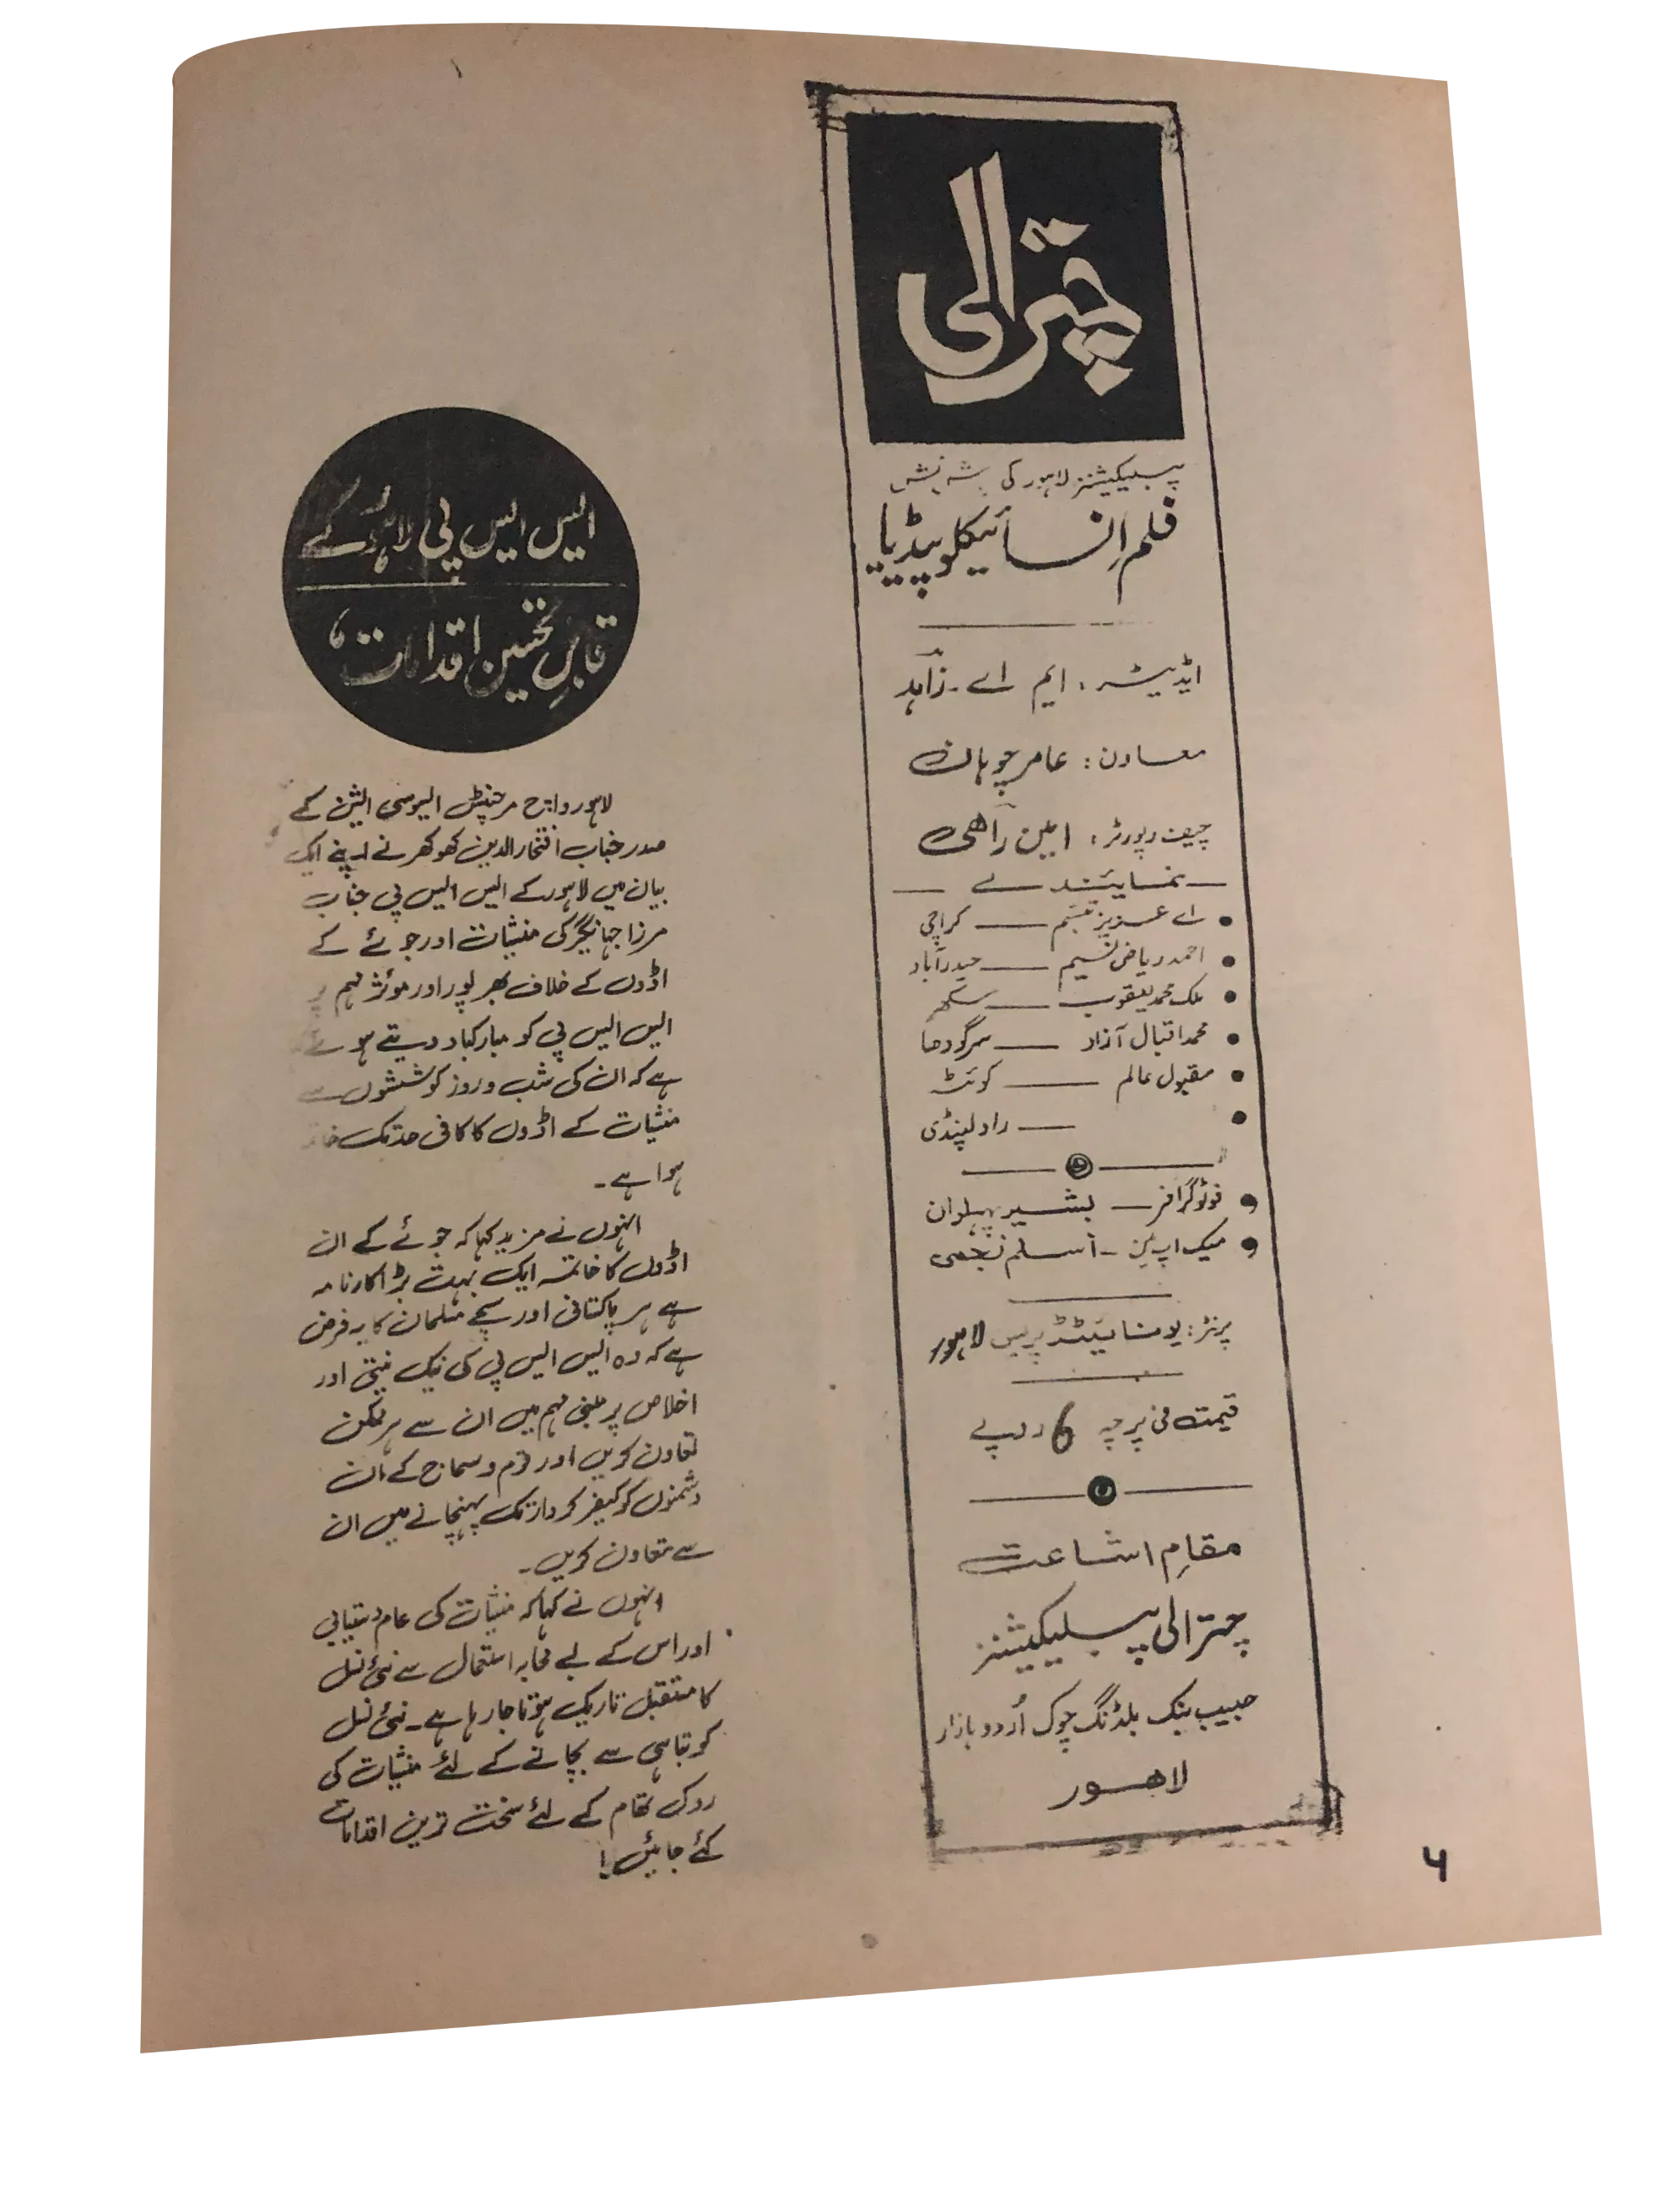 چترالی
پبلیکیشنز لاہور کی پیشکش
فلم انسائیکلوپیڈیا
ایڈیٹر: ایم اے۔ زاہد
معاون: عامر چوہان
چیف رپورٹر: امین راھی
نمائیندے
اے عزیز تبسم — کراچی
احمد ریاض نسیم — حیدرآباد
ملک محمد یعقوب — سکھر
محمد اقبال آزاد — سرگودھا
مقبول عالم — کوئٹہ
— راولپنڈی
فوٹوگرافر — بشیر پہلوان
میک اپ مین - اسلم نجمی
پرنٹر: یونائیٹڈ پریس لاہور
قیمت فی پرچہ 6 روپے
مقامِ اشاعت
چترالی پبلیکیشنز
حبیب بنک بلڈنگ چوک اُردو بازار
لاھور
ایس ایس پی لاہور کے
قابلِ تحسین اقدامات
لاہور واچ مرچنٹس ایسوسی ایشن کے
صدر جناب افتخار الدین کھوکھر نے اپنے ایک
بیان میں لاہور کے ایس ایس پی جناب
مرزا جہانگیر کی منشیات اور جوئے کے
اڈوں کے خلاف بھرپور اور موئثر مہم پر
ایس ایس پی کو مبارکباد دیتے ہوئے
ہے کہ ان کی شب و روز کوششوں سے
منشیات کے اڈوں کا کافی حد تک خاتمہ
ہوا ہے۔
انہوں نے مزید کہا کہ جوئے کے ان
اڈوں کا خاتمہ ایک بہت بڑا کارنامہ
ہے ہر پاکستانی اور سچے مسلمان کا یہ فرض
ہے کہ وہ ایس ایس پی کی نیک نیتی اور
اخلاص پر مبنی مہم میں ان سے ہر ممکن
تعاون کریں اور قوم و سماج کے ان
دشمنوں کو کیفر کردار تک پہنچانے میں ان
سے تعاون کریں۔
انہوں نے کہا کہ منشیات کی عام دستیابی
اور اس کے بے محابہ استعمال سے نئی نسل
کا مستقبل تاریک ہوتا جا رہا ہے۔ نئی نسل
کو تباہی سے بچانے کے لئے منشیات کی
روک تھام کے لئے سخت ترین اقدامات
کئے جائیں!
۴